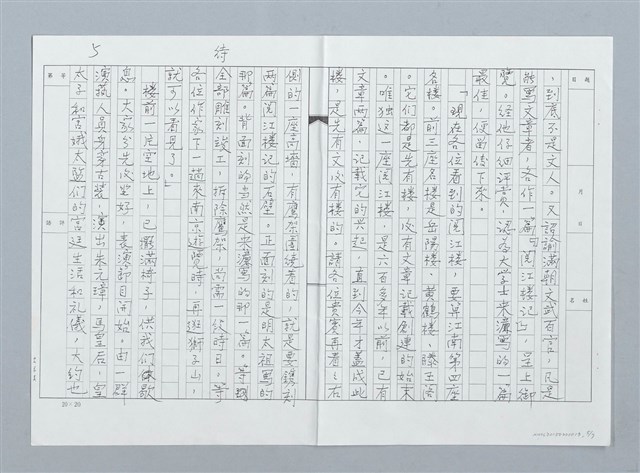 ，到底不是文人。又諭滿朝文武百官，凡是
能寫文章者，各作一篇「閱江樓記」，呈上御
覽。經他仔細評賞，認為大學士宋濂寫的一篇
最佳，便留傳下來。
「現在各位看到的閱江樓，要算江南第四座
名樓。前三座名樓是岳陽樓、黃鶴樓、滕王閣
。它們都是先有樓，次有文章記載創建的始末
。唯獨這一座閱江樓，是六百多年以前，已有
文章兩篇，記載它的興起，直到今年才蓋成此
樓，是先有文次有樓的。請各位貴賓再看，右
側的一座高牆，有鷹架圍繞着的，就是要鐫刻
兩篇閱江樓記的石壁。正面刻的是明太祖寫的
那篇。背面刻的當然是宋濂寫的那一篇。等
全部雕刻竣工，拆除鷹架，尚需一段時日。等
各位作家下一趟來南京遊覽時，再逛獅子山，
就可以看見了。」
樓前一片空地上，已擺滿椅子，供我們歇
息。大家分先次坐好，表演節目開始。由一群
演藝人員身穿古裝，演出朱元璋，馬皇后，皇
太子和宮娥太監們的宮廷生活和禮儀，大約也
5
待
第 字
題目
月
日
姓名
20×20